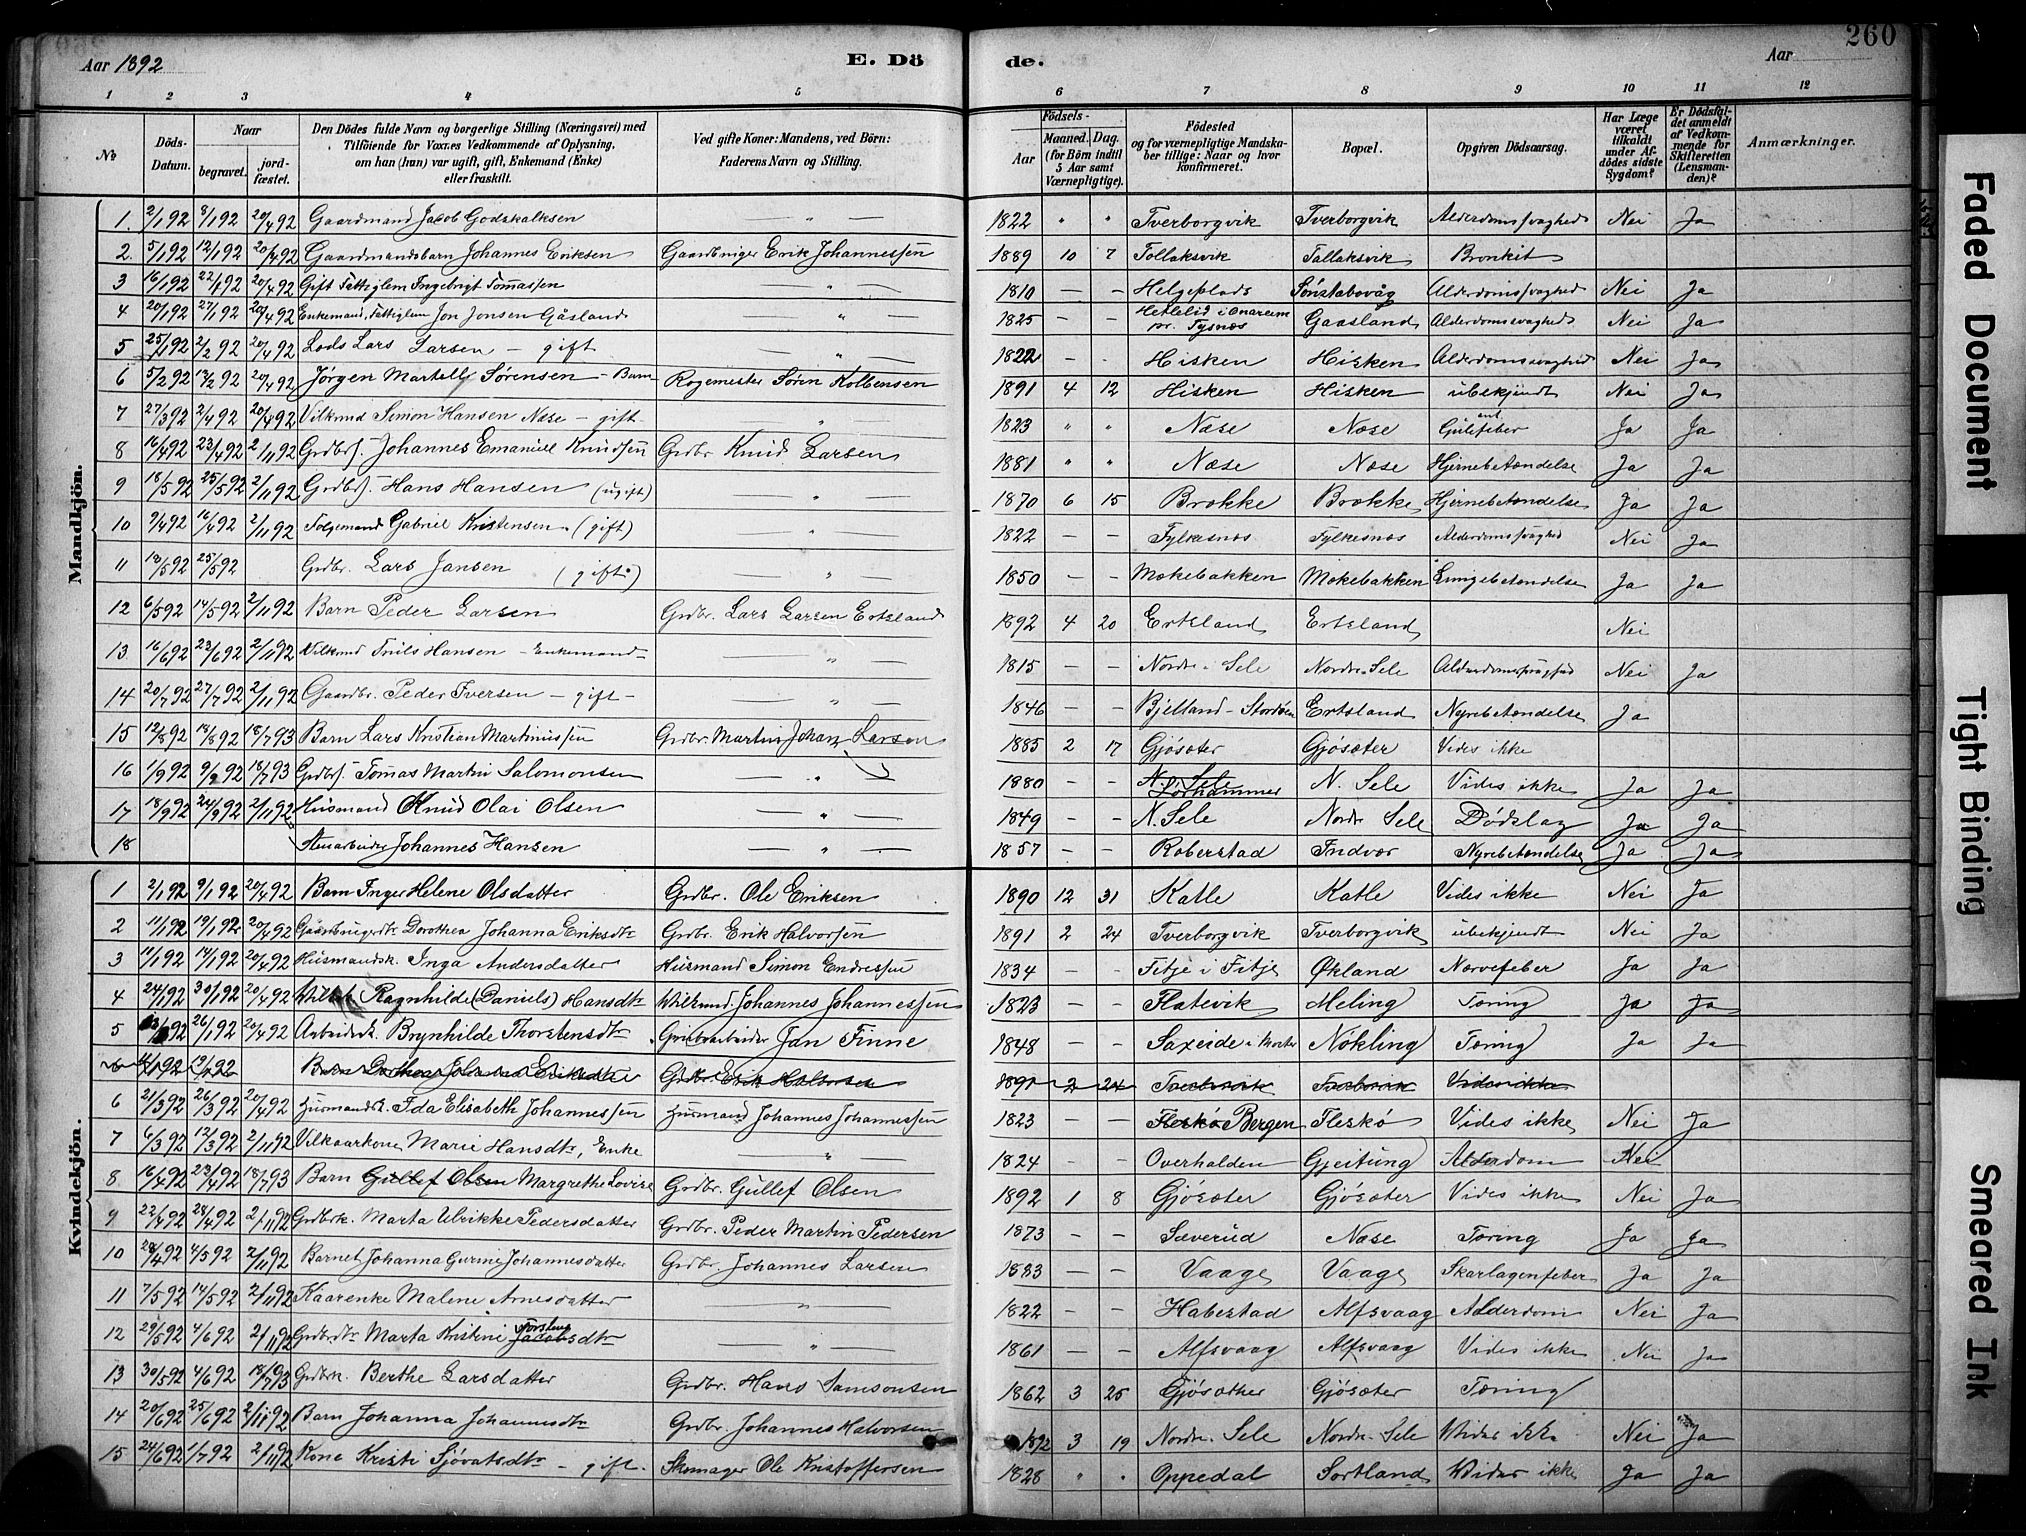 260
Aar 1892 E. Dö de. Aar
1 2 3 4 5 6 7 8 9 10 11 12
№ Döds-Datum. Naar begravet. jordfæstet. Den Dödes fulde Navn og borgerlige Stilling (Næringsvei) med Tilföiende for Voxnes Vedkommende af Oplysning, om han (hun) var ugift, gift, Enkemand (Enke) eller fraskilt. Ved gifte Koner: Mandens, ved Börn: Faderens Navn og Stilling. Födsels- Aar Maaned. Dag. (for Börn indtil 5 Aar samt Værnepligtige). Födested og for værnepligtige Mandskaber tillige: Naar og hvor konfirmeret. Bopæl. Opgiven Dödsaarsag. Har Læge været tilkaldt under Afdödes sidste Sygdom? Er Dödsfaldet anmeldt af Vedkommende for Skifteretten (Lensmanden)? Anmærkninger.
Mandkjön.
1. 2/1 92 8/1 92 20/4 92 Gaardmand Jacob Godskalksen " — 1822 " " Tverborgvik Tverborgvik Alderdomssvaghed Nei Ja
2. 5/1 92 12/1 92 20/4 92 Gaardmandsbarn Johannes Eriksen Gaardbruger Erik Johannessen 1889 10 7 Tollaksvik Tallaksvik Bronkit
3 16/1 92 22/1 92 20/4 92 Gift Fattiglem Ingebrigt Tomassen " — 1810 — — Helgeplads Sönstabovåg Alderdomssvaghed Nei Ja
4 20/1 92 27/1 92 20/4 92 Enkemand, Fattiglem Jon Jonsen Gåsland — " — 1825 — — Hetlelid i Onareim pr. Tysnes Gaasland Alderdomssvaghed Nei Ja
5 25/1 92 2/2 92 20/4 92 Lods Lars Larsen — gift — " — 1822 — - Hisken Hisken Alderdomssvaghed Nei Ja
6 5/2 92 13/2 92 20/4 92 Jörgen Martell Sörensen — Barn Rogemester Sören Kolbensen 1891 4 12 Hisken Hisken ubekjendt Nei Ja
7 27/3 92 2/4 92 20/4 92 Vilkmd Simon Hansen Næse — gift — " — 1823 " " Næse Næse ant. Gulefeber Ja Ja
8 16/4 92 23/4 92 2/11 92 Grdbrs. Johannes Emanuel Knudsen Grdbr Knud Larsen 1881 " " Næse Næse Hjernebetændelse Ja Ja
9 18/5 92 25/5 92 2/11 92 Grdbrs. Hans Hansen (ugift) — " — 1870 6 15 Brokke Brokke Hjernebetændelse Ja Ja
10 9/4 92 16/4 92 2/11 92 Folgemand Gabriel Kristensen. (gift) — " — 1822 — — Fylkesnæs Fylkesnæs Alderdomssvaghed Nei Ja
11 18/5 92 25/5 92 Grdbr. Lars Jansen (gift) — " — 1850 — — Mokebakken Mokebakken Lungebetændelse Ja Ja
12 6/5 92 14/5 92 2/11 92 Barn Peder Larsen Grdbr. Lars Larsen Ertsland 1892 4 20 Ertsland Ertsland Nei
13 16/6 92 23/6 92 2/11 92 Vilkmd Truls Hansen — Enkemand — " — 1815 — — Nordre Sele Nordre Sele Alderdomssvaghed Nei Ja
14 20/7 92 27/7 92 2/11 92 Gaardbr. Peder Iversen — gift — — " — 1846 — — Bjelland — Stordöen Ertsland Nyrebetændelse Ja
15 12/8 92 18/8 92 18/7 93 Barn Lars Kristian Martinussen Grdbr. Martin Johan Larsen 1885 2 17 Gjösæter Gjösæter Vides ikke
16 1/9 92 9/9 92 18/7 93 Grdbrs. Tomas Martin Salomonsen — " — 1880 — — N. Sele Lorhammer N. Sele Vides ikke Ja Ja
17 18/9 92 24/9 92 2/11 92 Husmand Knud Olai Olsen — " — 1849 — — N. Sele Nordr Sele Dödslag Ja Ja
18 Stenarbeider Johannes Hansen — " — 1857 — — Roberstad Indvær Nyrebetændelse Ja Ja
Kvindekjön.
1 2/1 92 9/1 92 20/4 92 Barn Inger Helene Olsdatter Grdbr. Ole Eriksen 1890 12 31 Katle Katle Vides ikke Nei Ja
2 11/1 92 19/1 92 20/4 92 Gaardbrugerdtr Dorothea Johanna Eriksdtr Grdbr. Erik Halvorsen 1891 2 24 Tverborgvik Tverborgvik ubekjendt Nei Ja
3 11/1 92 14/1 92 20/4 92 Husmandsk. Inga Andersdatter Husmand Simon Endressen 1834 — — Fitje i Fitje Økland Nervefeber Ja Ja
4 24/1 92 30/1 92 20/4 92 Vilkk Ragnhilde (Daniels) Hansdtr Vilkmd. Johannes Johannessen 1823 — — Flatevik Meling Tæring Ja Ja
5 92 26/1 92 20/4 92 Arbeidersk. Brynhilde Thorstensdtr Grubearbeider Jan Finne 1848 — — Saxeide i Moster Nökling Tæring Ja Ja
6 11/1 92 19/1 92 Barn Dorthea Johanna Eriksdtr Grdbr. Erik Halvorsen 1891 2 24 Tverborvik Tverborvik Vides ikke
6 21/3 92 26/3 92 20/4 92 Husmandsk. Ida Elisabeth Johannessen Husmand Johannes Johannessen 1823 — — Fleskö Bergen Fleskö Vides ikke Nei Ja
7 6/3 92 12/3 92 2/11 92 Vilkaarkone Marie Hansdtr, Enke — " — 1824 — — Overhalden Gjeitung Alderdom Nei
8 16/4 92 23/4 92 18/7 93 Barn Gullef Olsen Margrethe Lovise Grdbr. Gullef Olsen 1892 1 8 Gjösæter Gjösæter Vides ikke Nei Ja
9 22/4 92 28/4 92 2/11 92 Grdbrk. Marta Ulrikke Pedersdatter Grdbr. Peder Martin Pedersen 1873 — — Sæverud Næse Tæring Ja Ja
10 28/4 92 4/5 92 2/11 92 Barnet Johanna Gurine Johannesdatter Grdbr. Johannes Larsen 1883 — — Vaage Vaage Skarlagensfeber Ja Ja
11 7/5 92 14/5 92 2/11 92 Kaarenke Malene Arnesdatter — " — 1822 — — Habestad Alfsvaag Alderdom Nei Ja
12 29/5 92 4/6 92 2/11 92 Grdbrdtr Marta Kristine Jacobsdtr — " — 1861 — — Alfsvaag Alfsvaag Vides ikke Nei Ja
13 30/5 92 4/6 92 18/7 93 Grdbrk. Berthe Larsdatter Grdbr. Hans Samsonsen 1862 3 25 Gjösæther Gjösæter Tæring
14 20/6 92 25/6 92 2/11 92 Barn Johanna Johannesdtr Grdbr. Johannes Halvorsen 1892 3 19 Nordre Sele Nordre Sele Vides ikke Nei Ja
15 24/6 92 1/7 92 2/11 92 Kone Kristi Sjövatsdtr — gift. Skomager Ole Kristoffersen 1828 " " Oppedal Sortland Vides ikke Ja Ja
Faded Document
Tight Binding
Smeared Ink